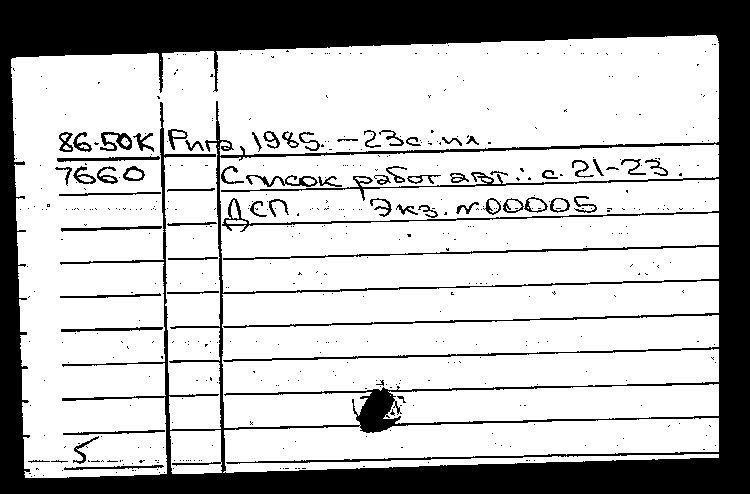 86-50K Рига, 1985. - 23 с.: ил.
7660 Список работ авт.: с. 21-23.
ДСП. Экз. N00005.
5